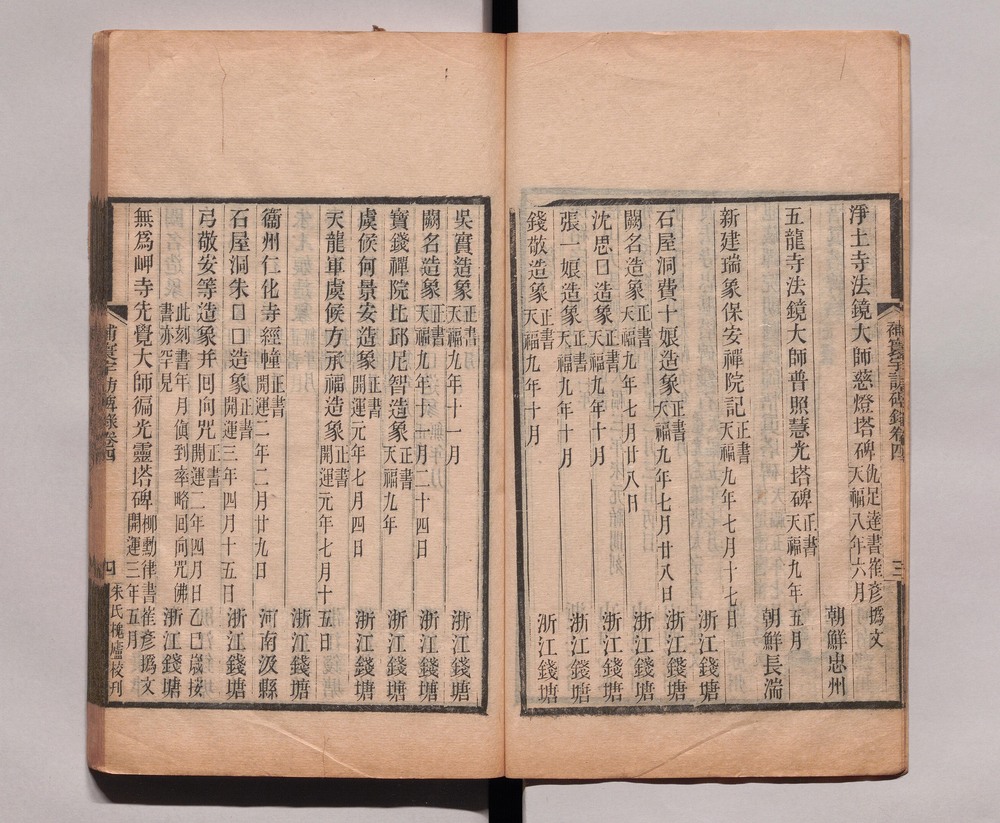 淨土寺法鏡大師慈燈塔碑 仇足達書崔彥撝文 天福八年六月 朝鮮忠州
五龍寺法鏡大師普照慧光塔碑 正書 天福九年五月 朝鮮長湍
新建瑞象保安禪院記 正書 天福九年七月十七日 浙江錢塘
石屋洞費十娘造象 正書 天福九年七月廿八日 浙江錢塘
闕名造象 正書 天福九年七月廿八日 浙江錢塘
沈思囗造象 正書 天福九年十月 浙江錢塘
張一娘造象 正書 天福九年十月 浙江錢塘
錢敬造象 正書 天福九年十月 浙江錢塘
補寰宇訪碑錄卷四 三
吳實造象 正書 天福九年十一月 浙江錢塘
闕名造象 正書 天福九年十一月二十四日 浙江錢塘
寶錢禪院比邱尼智造象 正書 天福九年 浙江錢塘
虞候何景安造象 正書 開運元年七月四日 浙江錢塘
天龍軍虞候方承福造象 正書 開運元年七月十五日 浙江錢塘
衞州仁化寺經幢 正書 開運二年二月廿九日 河南汲縣
石屋洞朱囗囗造象 正書 開運三年四月十五日 浙江錢塘
弓敬安等造象并回向咒 正書 開運二年四月日乙巳歲 浙江錢塘
此刻書年月傎到率略回向咒佛
書亦罕見
無爲岬寺先覺大師徧光靈塔碑 柳勳律書崔彥撝文 開運三年五月
補寰宇訪碑錄卷四 四 朱氏槐廬校刊